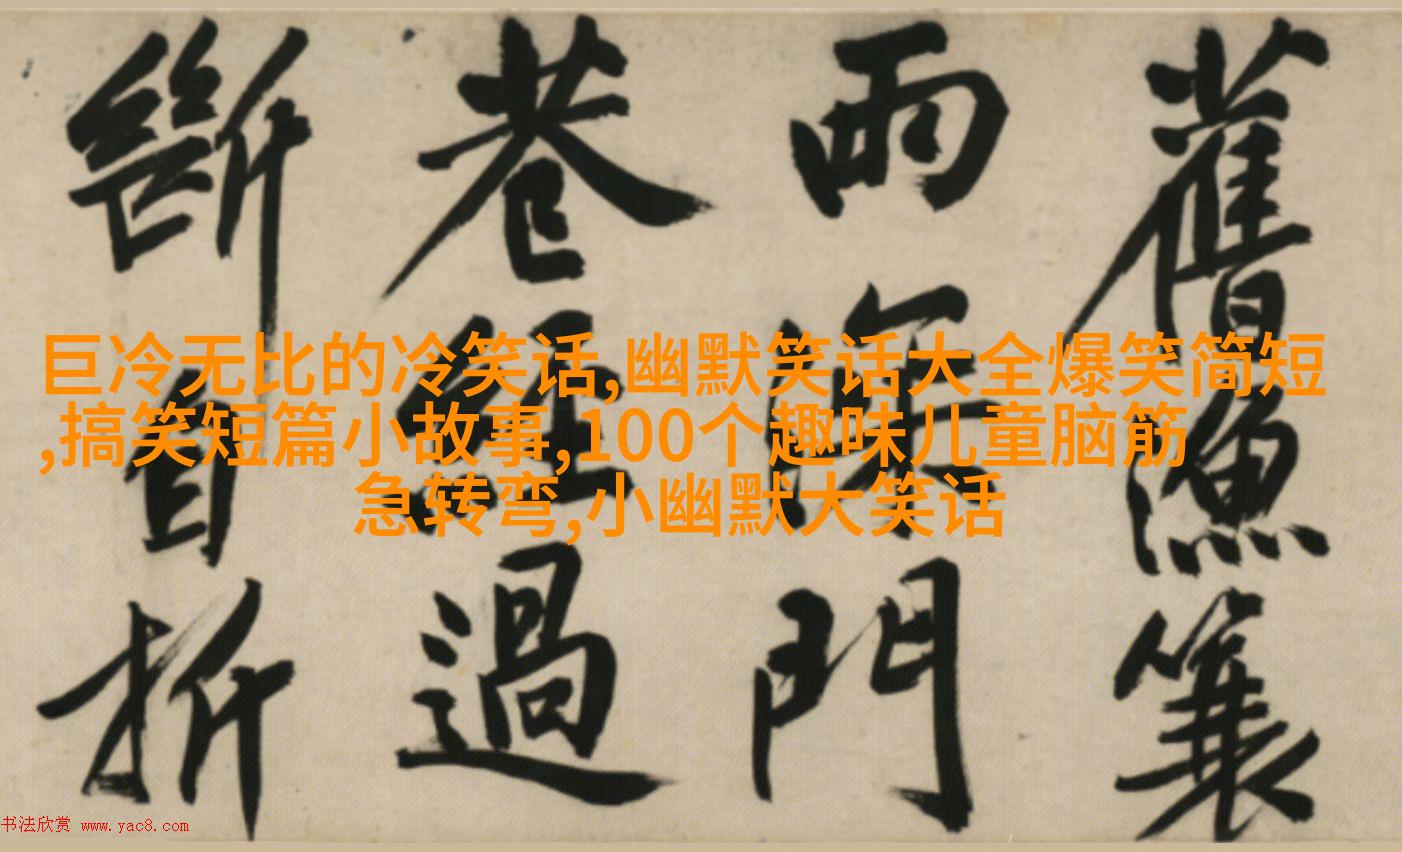 舊漁簑
雨深門
巷經過
斷自折
巨冷无比的冷笑话,幽默笑话大全爆笑简短
,搞笑短篇小故事,100个趣味儿童脑筋
急转弯,小幽默大笑话
书法欣赏 www.yac8.com